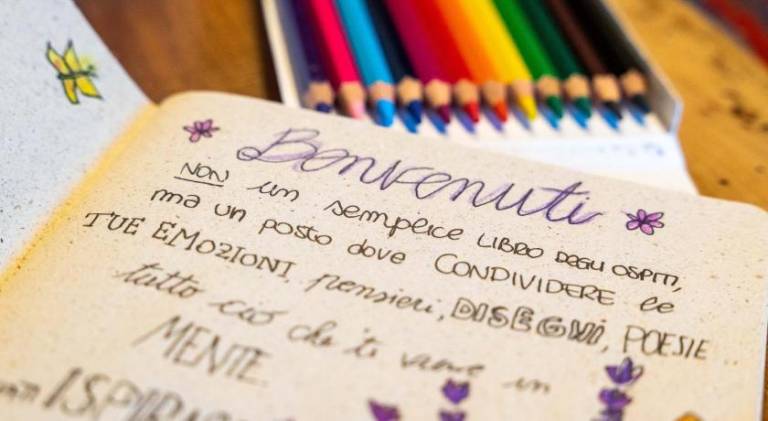 Benvenuti
NON un semplice LIBRO DEGLI OSPITI,
ma un posto dove CONDIVIDERE le
TUE EMOZIONI, pensieri, DISEGNI, POESIE
tutto ciò che ti viene in
MENTE